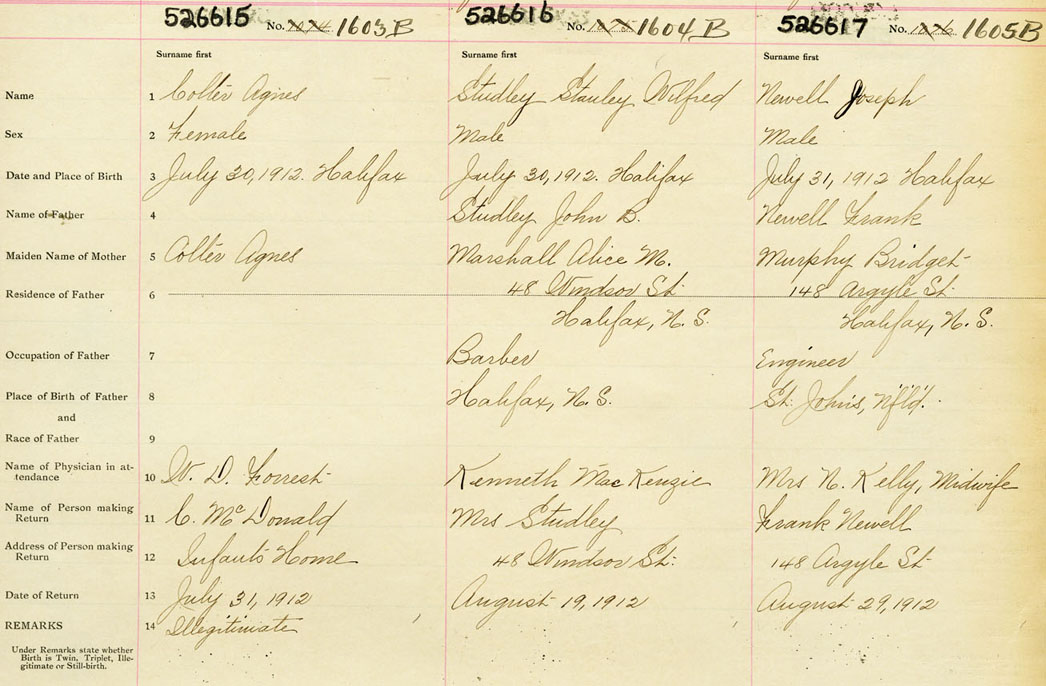 526615 No. 1603 B 526616 No. 1604 B 526617 No. 1605 B
Surname first Surname first Surname first
Name 1 Colter Agnes Studley Stanley Wilfred Newell Joseph
Sex 2 Female Male Male
Date and Place of Birth 3 July 30, 1912. Halifax July 30, 1912. Halifax July 31, 1912 Halifax
Name of Father 4 Studley John B. Newell Frank
Maiden Name of Mother 5 Colter Agnes Marshall Alice M. Murphy Bridget
Residence of Father 6 48 Windsor St. 148 Argyle St.
Halifax, N.S. Halifax, N.S.
Occupation of Father 7 Barber Engineer
Place of Birth of Father 8 Halifax, N.S. St. John's, Nfld.
and
Race of Father 9
Name of Physician in at-
tendance 10 W. D. Forrest Kenneth MacKenzie Mrs N. Kelly, Midwife
Name of Person making
Return 11 C. McDonald Mrs Studley Frank Newell
Address of Person making
Return 12 Infants Home 48 Windsor St. 148 Argyle St
Date of Return 13 July 31, 1912 August 19, 1912 August 29, 1912
REMARKS 14 Illegitimate
Under Remarks state whether
Birth is Twin, Triplet, Ille-
gitimate or Still-birth.